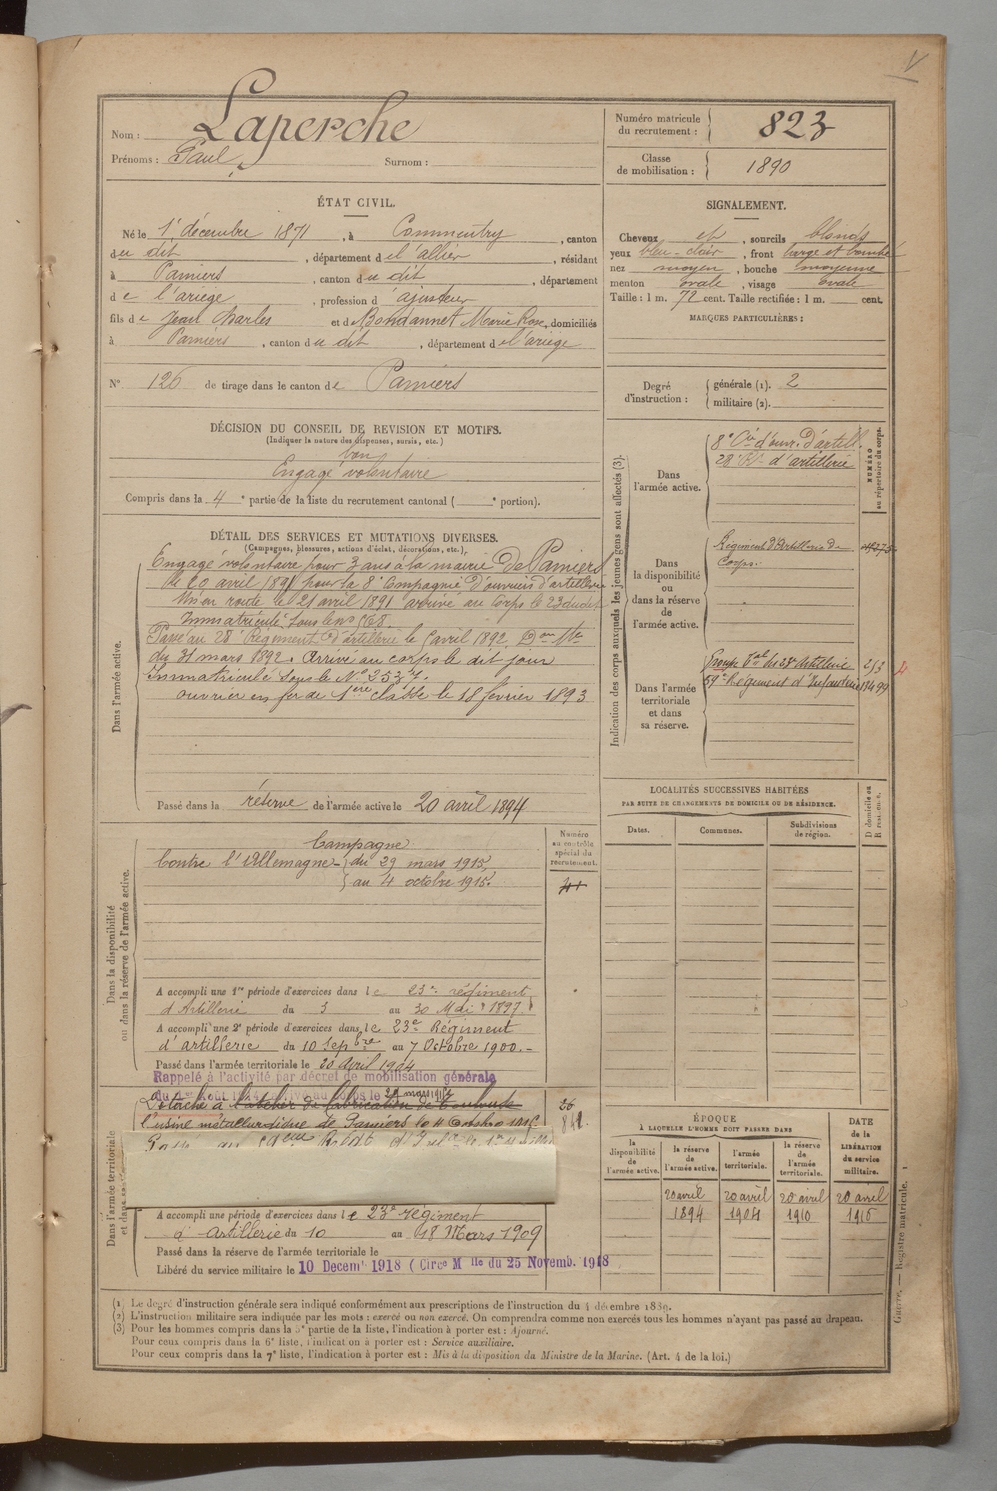 Nom : Laperche
Prénoms : Paul Surnom :
Numéro matricule du recrutement : 823
Classe de mobilisation : 1890
ÉTAT CIVIL.
Né le 1er décembre 1871, à Commentry, canton
du dit, département de l'allier, résidant
à Pamiers, canton du dit, département
de l'ariège, profession d ajusteur
fils de Jean Charles et de Bondannet Marie Rose, domiciliés
à Pamiers, canton du dit, département de l'ariège
N° 126 de tirage dans le canton de Pamiers
SIGNALEMENT.
Cheveux et, sourcils blonds
yeux bleu-clair, front large et bombé
nez moyen, bouche moyenne
menton ovale, visage ovale
Taille : 1 m. 72 cent. Taille rectifiée : 1 m. cent.
MARQUES PARTICULIÈRES :
Degré d'instruction : générale (1). 2
militaire (2).
DÉCISION DU CONSEIL DE REVISION ET MOTIFS.
(Indiquer la nature des dispenses, sursis, etc.)
bon
Engagé volontaire
Compris dans la 4e partie de la liste du recrutement cantonal ( e portion).
DÉTAIL DES SERVICES ET MUTATIONS DIVERSES.
(Campagnes, blessures, actions d'éclat, décorations, etc.).
Dans l'armée active.
Engagé volontaire pour 3 ans à la mairie de Pamiers
le 20 avril 1891 pour la 8e Compagnie d'ouvriers d'artillerie
Mis en route le 21 avril 1891 arrivé au Corps le 23 dudit
Immatriculé sous le no 568.
Passé au 28e Régiment d'artillerie le 5 avril 1892, Don Mle
du 31 mars 1892. Arrivé au corps le dit jour
Immatriculé sous le No 2537.
ouvrier en fer de 1ère classe le 18 février 1893
Passé dans la réserve de l'armée active le 20 avril 1894
Indication des corps auxquels les jeunes gens sont affectés (3).
NUMÉRO au répertoire du corps.
Dans l'armée active.
8e Cie d'ouvr. d'artill.
28e Rt d'artillerie
Dans la disponibilité ou dans la réserve de l'armée active.
Régiment d'Artillerie de
Corps.
Dans l'armée territoriale et dans sa réserve.
Groupe Tal du 23e Artillerie 253
59e Régiment d'Infanterie 13499
LOCALITÉS SUCCESSIVES HABITÉES
PAR SUITE DE CHANGEMENTS DE DOMICILE OU DE RÉSIDENCE.
Dates. Communes. Subdivisions de région. D domicile ou R résidence.
Dans la disponibilité ou dans la réserve de l'armée active.
Numéro au contrôle spécial du recrutement.
Campagne
Contre l'Allemagne - du 29 mars 1915,
au 4 octobre 1915.
A accompli une 1re période d'exercices dans le 23e régiment
d'Artillerie du 3 au 30 Mai 1897
A accompli une 2e période d'exercices dans le 23e Régiment
d'artillerie du 10 Sepbre au 7 Octobre 1900.-
Passé dans l'armée territoriale le 20 avril 1904
Rappelé à l'activité par décret de mobilisation générale
Détaché à l'atelier de fabrication de Toulouse
l'usine métallurgique de Pamiers le 4 Octobre 1915.
26
841.
Dans l'armée territoriale
A accompli une période d'exercices dans le 23e régiment
d'Artillerie du 10 au 18 Mars 1909
Passé dans la réserve de l'armée territoriale le
Libéré du service militaire le 10 Decemb 1918 (Circe Mlle du 25 Novemb. 1918
ÉPOQUE
A LAQUELLE L'HOMME DOIT PASSER DANS
la disponibilité de l'armée active. la réserve de l'armée active. l'armée territoriale. la réserve de l'armée territoriale.
DATE de la LIBÉRATION du service militaire.
20 avril 20 avril 20 avril 20 avril
1894 1904 1910 1916
(1) Le degré d'instruction générale sera indiqué conformément aux prescriptions de l'instruction du 4 décembre 1889.
(2) L'instruction militaire sera indiquée par les mots : exercé ou non exercé. On comprendra comme non exercés tous les hommes n'ayant pas passé au drapeau.
(3) Pour les hommes compris dans la 5e partie de la liste, l'indication à porter est : Ajourné.
Pour ceux compris dans la 6e liste, l'indication à porter est : Service auxiliaire.
Pour ceux compris dans la 7e liste, l'indication à porter est : Mis à la disposition du Ministre de la Marine. (Art. 4 de la loi.)
Guerre. — Registre matricule. 1